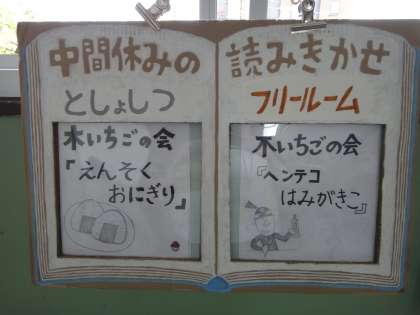 中間休みの
読みきかせ
としょしつ
木いちごの会
「えんそく
おにぎり」
フリールーム
木いちごの会
『ヘンテコ
はみがきこ』